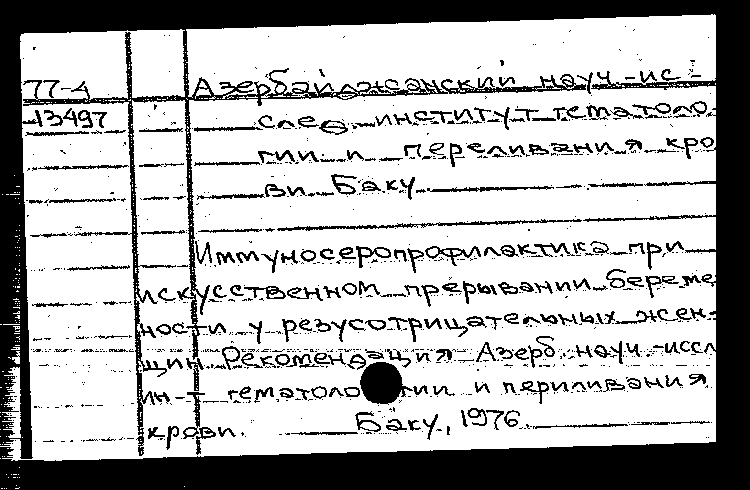 77-4 Азербайджанский науч-ис-
13497 след. институт гематоло-
гии и переливания кро
ви Баку
Иммуносеропрофилактика при
искусственном прерывании береме
ности у резусотрицательных жен-
щин Рекомендация Азерб. науч.-иссл
ин-т гематологии и периливания
крови. Баку, 1976